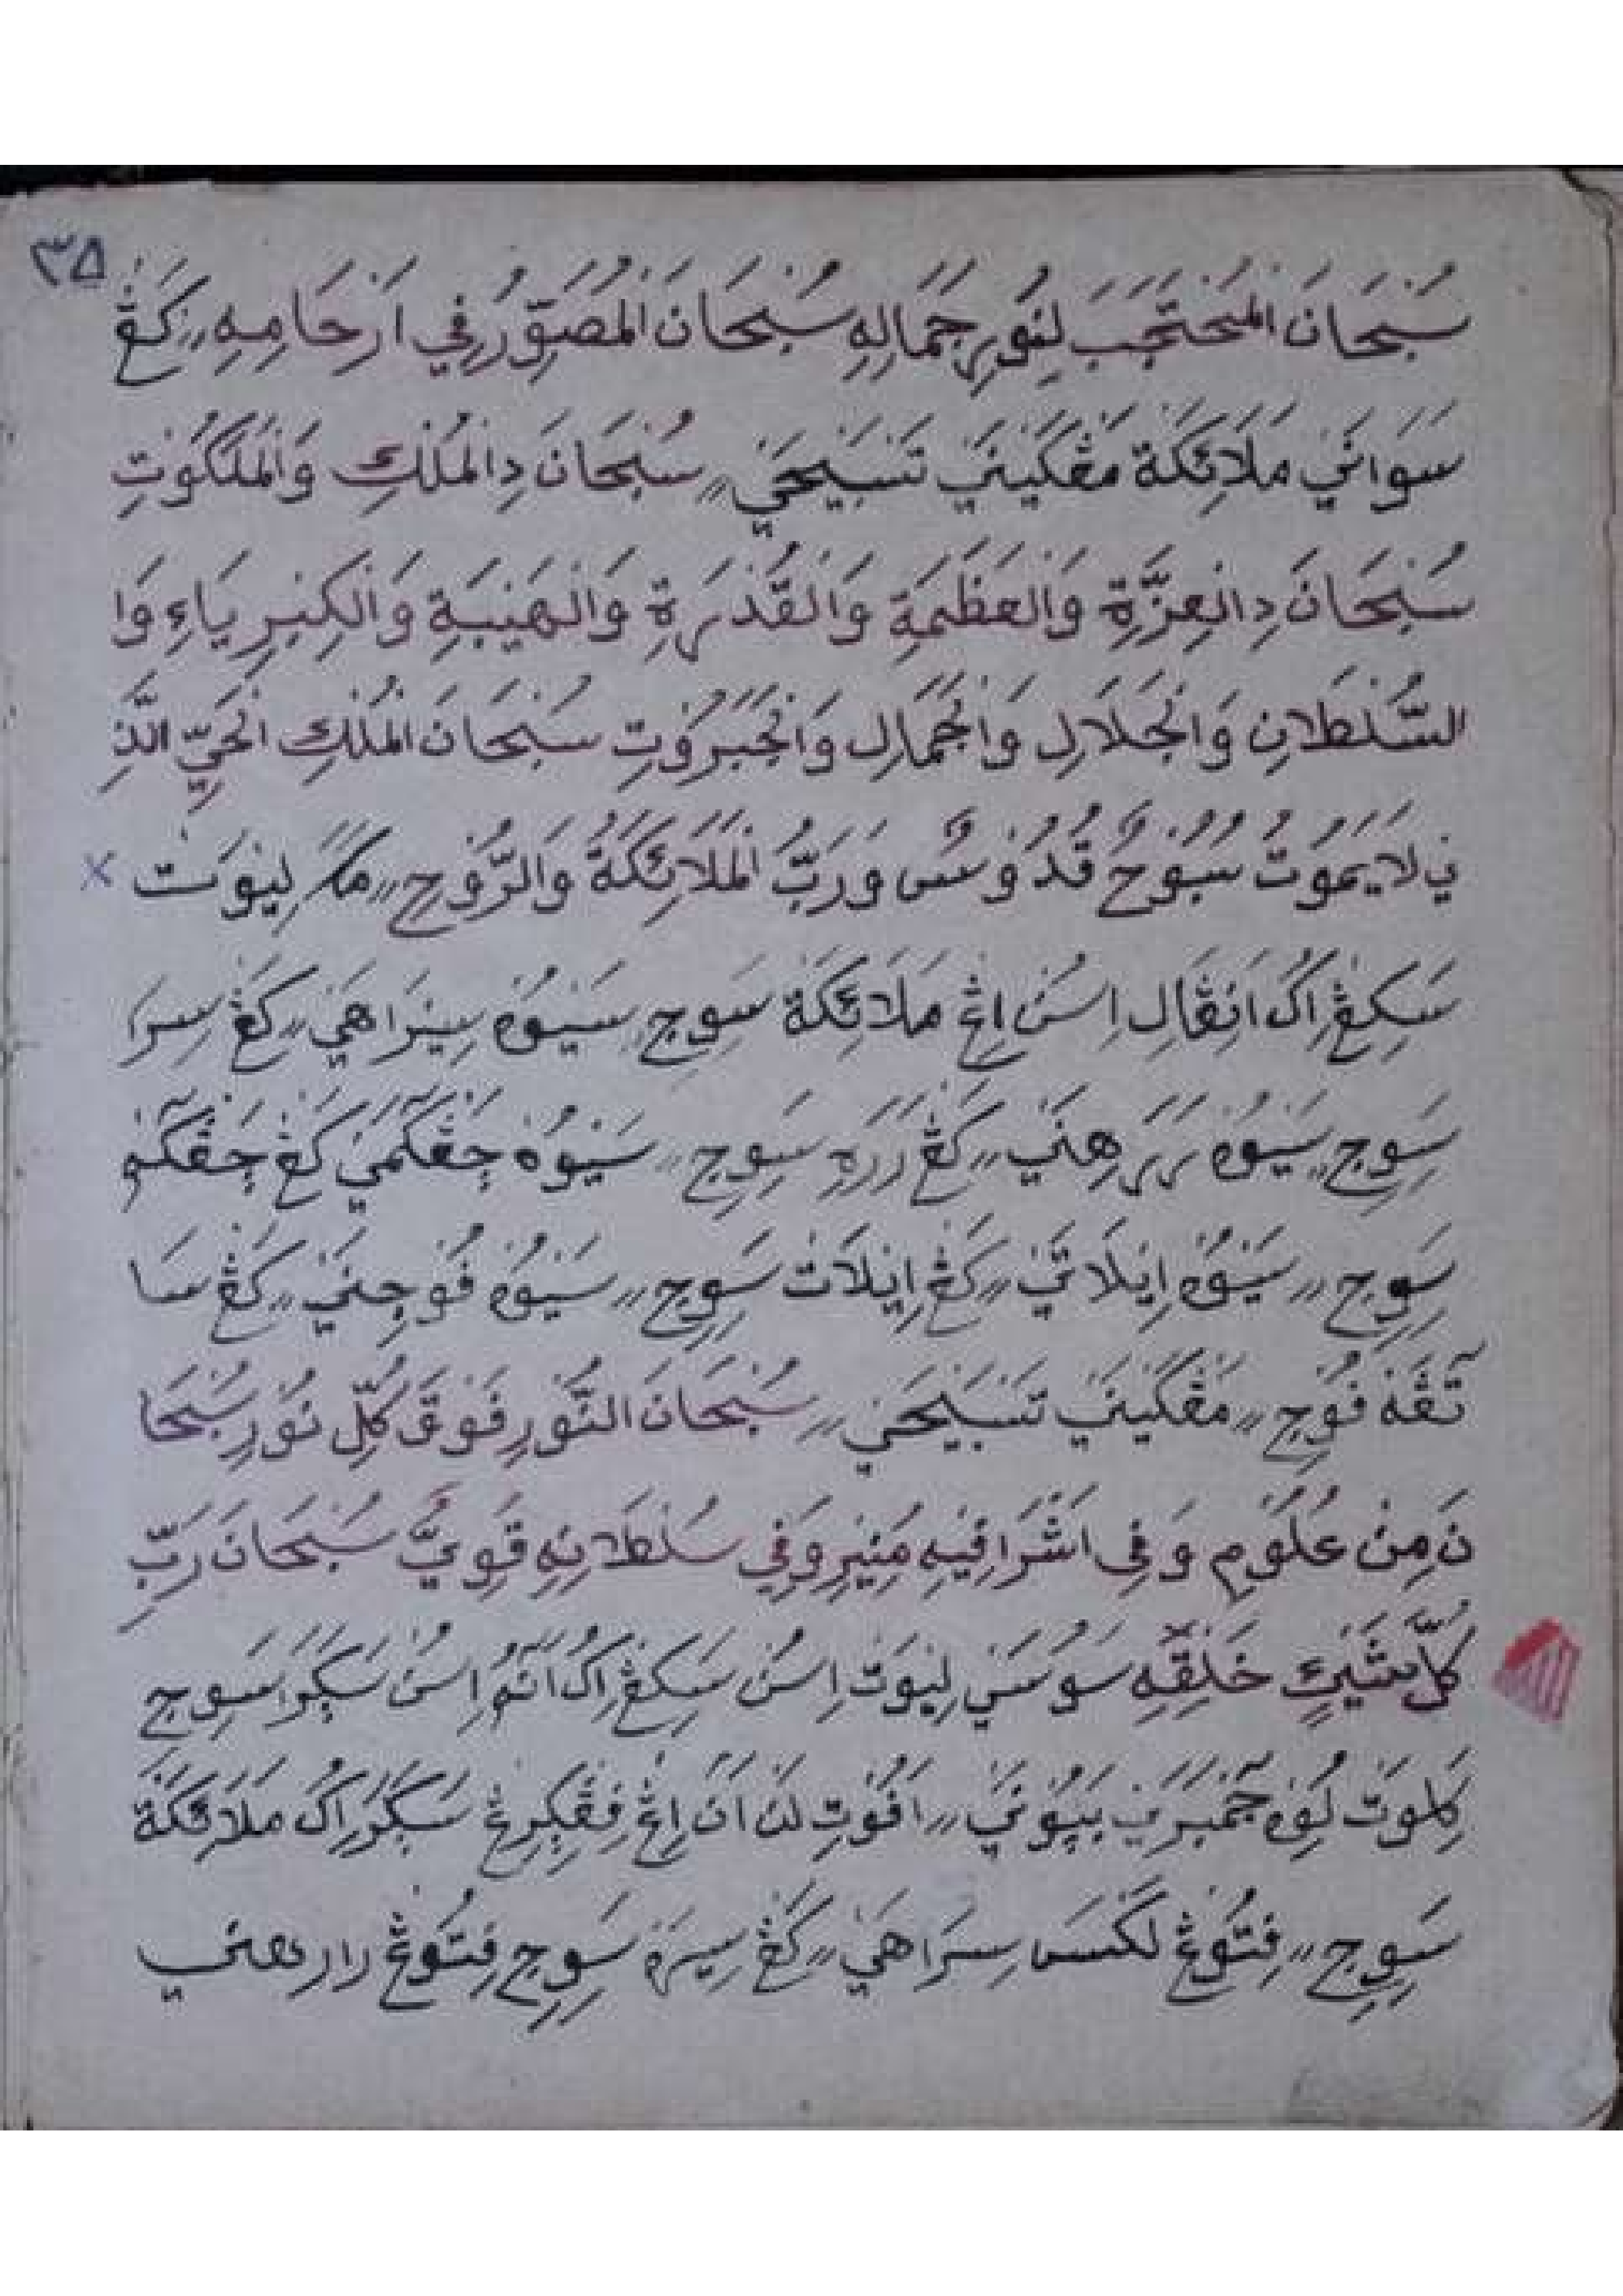 ٣٥
سُبْحَانَ الْمُحْتَجَبَ لِنُوْرِ جَمَالِهِ سُبْحَانَ الْمُصَوِّرُ فِي اَرْحَامِهِ〃 كَڠْ
سَوَانَيْ مَلَائِكَةْ مَڠْكَيْنَيْ تَسْبِيْحَيْ〃 سُبْحَانَ دِالْمُلْكِ وَالْمَلَكُوْتِ
سُبْحَانَ دِالْعِزَّةِ وَالْعَظَمَةِ وَالْقُدْرَةِ وَالْهَيْبَةِ وَالْكِبْرِيَاءِ وَا
السُّلْطَانِ وَالْجَلَالِ وَالْجَمَالِ وَالْجَبَرُوْتِ سُبْحَانَ الْمُلْكِ الْحَيِّ الَّذِ
يْ لَا يَمُوْتُ سُبُوْحٌ قُدُوْسٌ وَرَبُّ الْمَلَائِكَةُ وَالرُّوْحِ〃 لِيْوَتْ
سَكِڠْ اِكُ اِسُنْ اِڠْ مَلَائِكَةْ سَوِجِ〃 سَيْوُهْ سِيْرَاهَيْ〃 كَڠْ سِرَا
سَوِجِ〃 سَيْوُهْ رَرَهِنَيْ〃 كَڠْ رَرَهِ سَوِجِ〃 سَيْوُهْ چَڠْكَمَيْ كَڠْ چَڠْكَمْ
سَوِجِ〃 سَيْوُهْ اِيْلَاتَيْ〃 كَڠْ اِيْلَاتْ سَوِجِ〃 سَيْوُهْ فُوْجِنَيْ〃 كَڠْ سَا
تَڠَهْ فُوْجِ〃 مَڠْكَيْنَيْ تَسْبِيْحَيْ〃 سُبْحَانَ النُّوْرِ فَوْقَ كُلِّ نُوْرٍ سُبْحَا
نَ مِنْ عُلُوْمِ وَفِى اَشْرَافِيْهِ مُنِيْرٍ وَفِي سُلْطَانِهِ قَوِيٌّ سُبْحَانَ رَبِّ
كُلِّ شَيْئٍ خَلِقِهِ سَوُسَيْ لِيْوَتْ اِسُنْ سَكِڠْ اِكُ اِسُنْ سَوِجِ
لُوِهْ〃 اِڠْ اِكُ مَلَائِكَةْ
سَوِجِ〃 فِتُوْڠْ لَكْسَ سِرَاهَيْ〃 كَڠْ سِيْرَهْ سَوِجِ فِتُوْڠْ رارهني